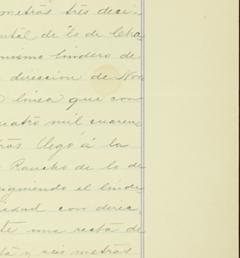 metros tres deci-
ental de lo de Cha
mismo lindero de
direccion de Nor
linea que con
uatro mil cuaren
ros llegó á la
Rancho de lo de
siguiendo el linde
edad con direc
te una recta de
ta y seis metros